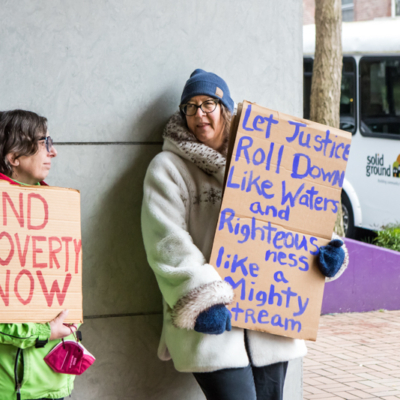 ND
OVERTY
NOW
Let Justice
Roll Down
Like Waters
and
Righteous
ness
like a
Mighty
Stream
solid
ground